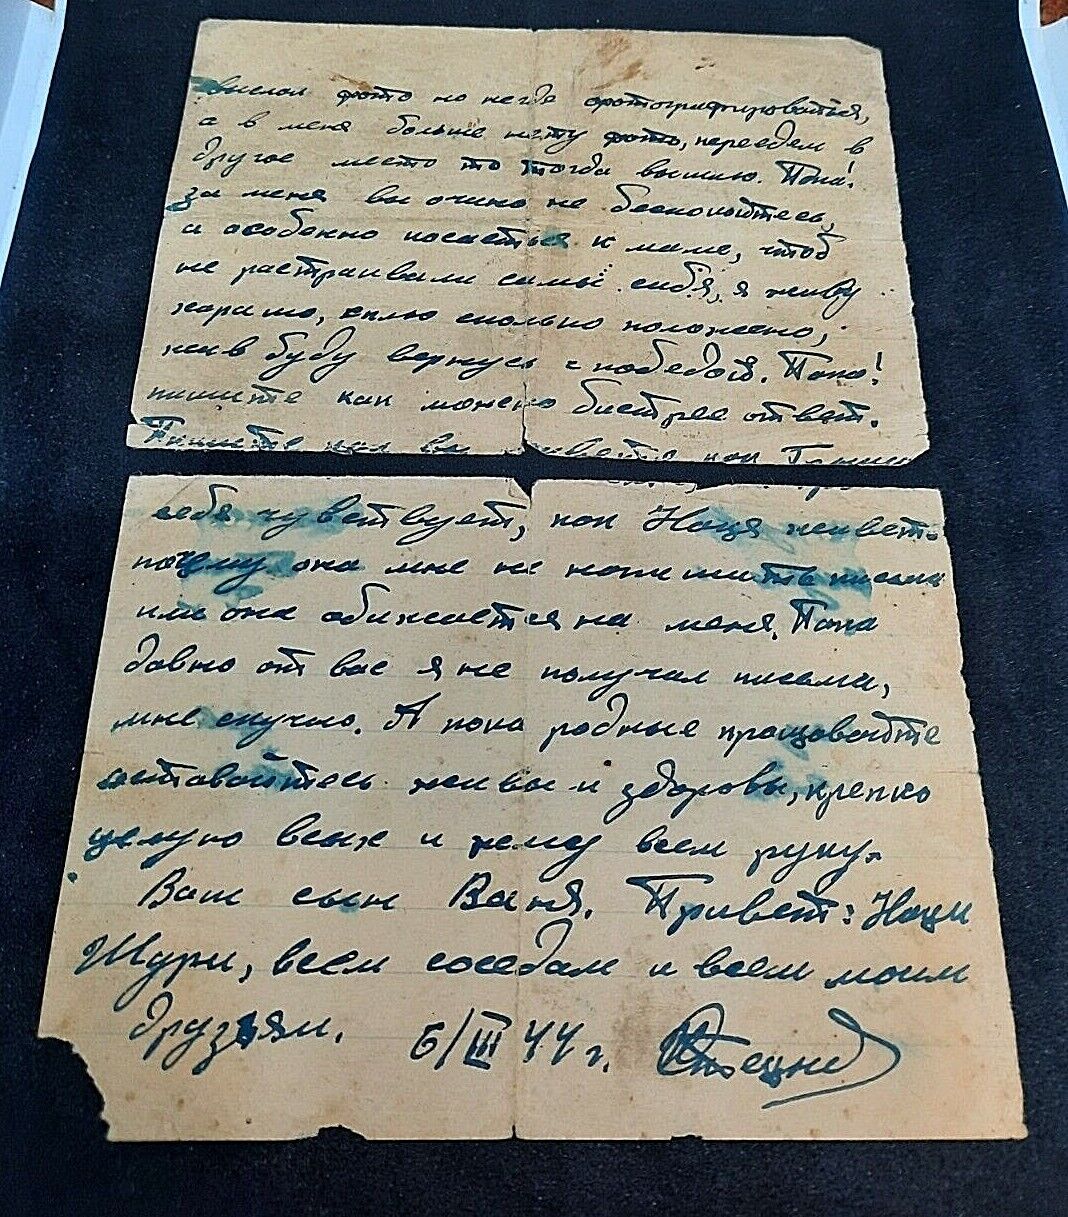 выслал фото но негде фотографироваться,
а в меня больше нету фото, переедем в
другое место то тогда вышлю. Папа!
за меня вы очино не беспокойтесь,
и особенно косаеться к маме, чтоб
не растраивали самы себя, я живу
харашо, сплю сколько положено,
жив буду вернусь с победой. Папа!
пишите как можно быстрее ответ.
Пишите как вы живете как
себя чувствует, как Надя живет
почему она мне не напишить письма
или она обижается на меня. Папа
давно от вас я не получал письма,
мне скучно. А пока родные пращовайте
оставайтесь живы и здоровы, крепко
целую всех и жму всем руку.
Ваш сын Ваня. Привет: Нади
Шури, всем соседам и всем моим
друзьям. 6/III 44 г.